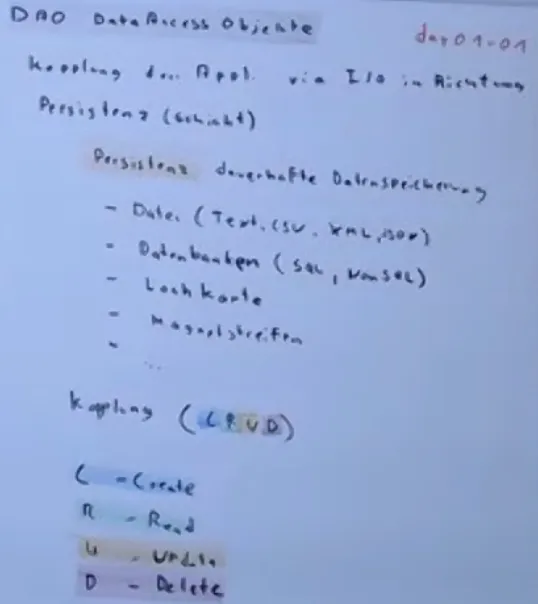 DAO Data Access Objekte
dao01-01
Kopplung der Appl. via I/O in Richtung
Persistenz (schicht)
Persistenz dauerhafte Datenspeicherung
- Datei (Text, CSV, XML, JSON)
- Datenbanken (SQL, NonSQL)
- Lochkarte
- Magnetstreifen
- ...
Kopplung (CRUD)
C - Create
R - Read
U - Update
D - Delete